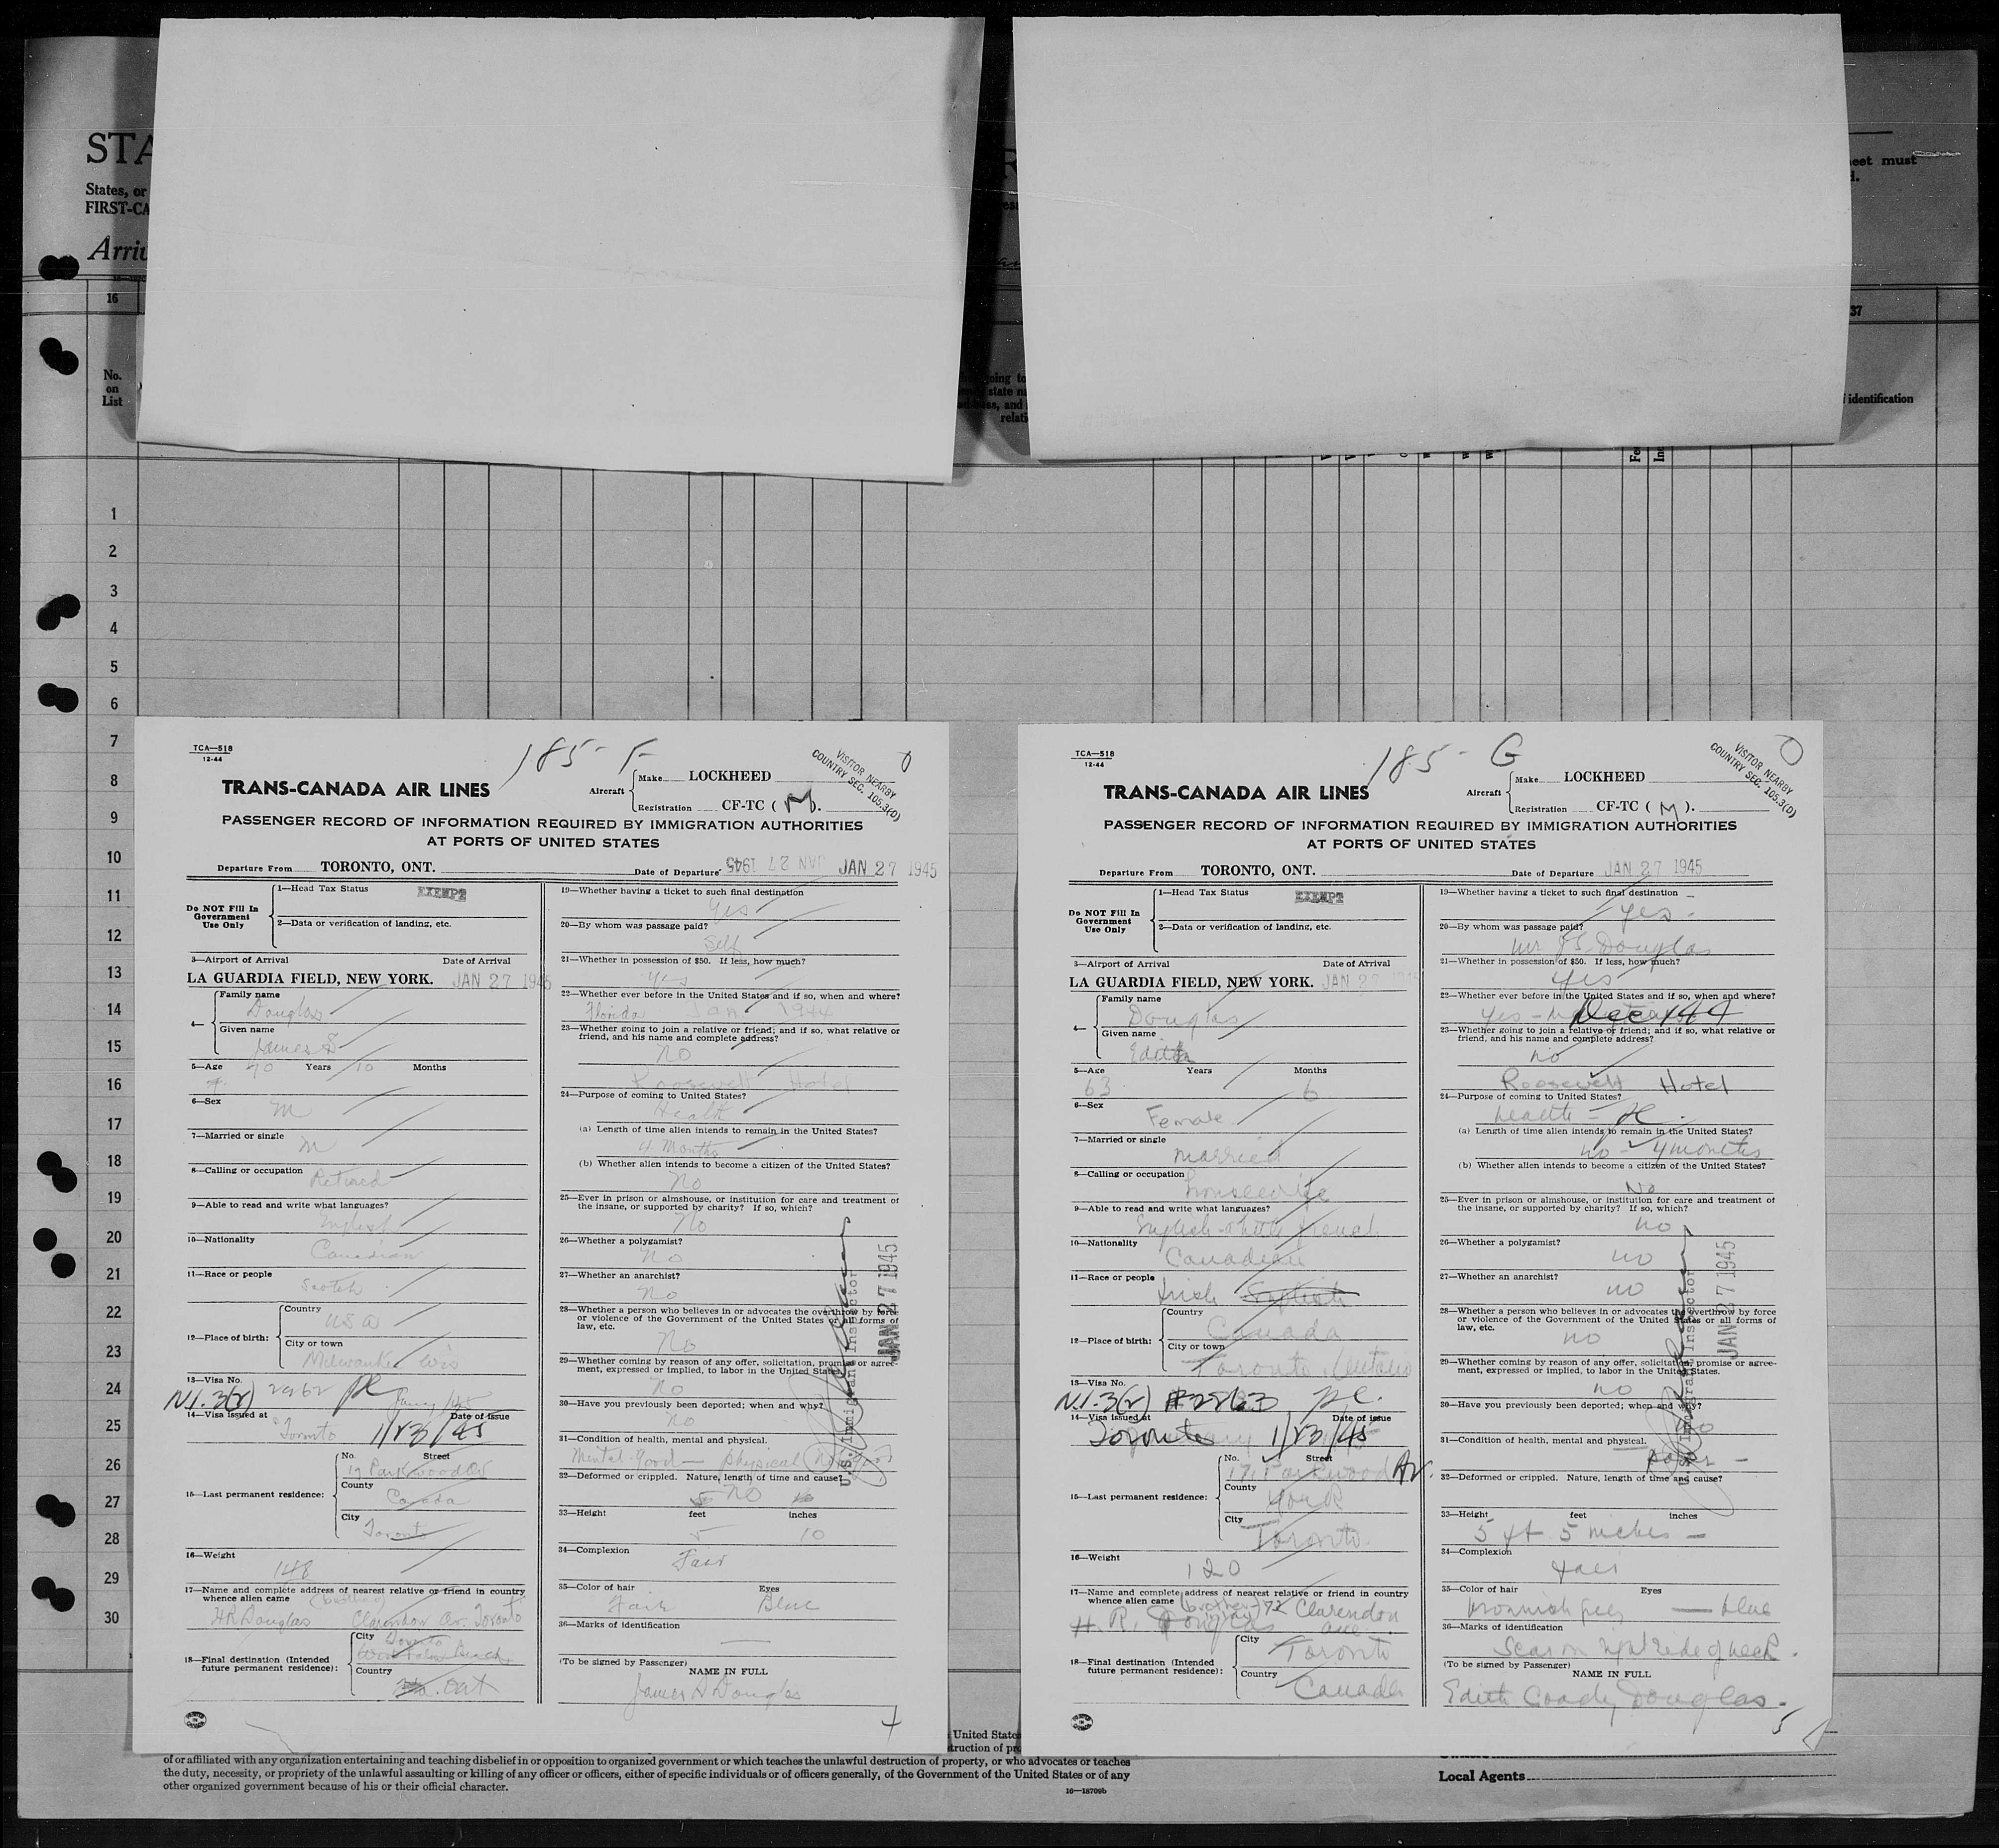 STA
States, or
FIRST-CA
Arriv
R
eet must
d.
16
37
No.
on
List
oing to
state n
ss, and
relati
identification
Fe
In
1
2
3
4
5
6
7
8
9
10
11
12
13
14
15
16
17
18
19
20
21
22
23
24
25
26
27
28
29
30
TCA—518
12-44
185-F
VISITOR NEARBY
COUNTRY SEC. 105.3(D)
TRANS-CANADA AIR LINES
Aircraft
Make LOCKHEED
Registration CF-TC ( M ).
PASSENGER RECORD OF INFORMATION REQUIRED BY IMMIGRATION AUTHORITIES
AT PORTS OF UNITED STATES
Departure From TORONTO, ONT. Date of Departure JAN 27 1945 JAN 27 1945
Do NOT Fill In
Government
Use Only
1—Head Tax Status EXEMPT
2—Data or verification of landing, etc.
3—Airport of Arrival Date of Arrival
LA GUARDIA FIELD, NEW YORK. JAN 27 1945
4—
Family name
Douglas
Given name
James S
5—Age 70 Years 10 Months
6—Sex
M
7—Married or single
M
8—Calling or occupation
Retired
9—Able to read and write what languages?
English
10—Nationality
Canadian
11—Race or people
Scotch
12—Place of birth:
Country
USA
City or town
Milwaukee Wis
13—Visa No.
N.I. 3(2) 2962
14—Visa Issued at Date of Issue
Toronto 1/23/45
15—Last permanent residence:
No. Street
17 Parkwood Av
County
Canada
City
Toronto
16—Weight
148
17—Name and complete address of nearest relative or friend in country
whence alien came (brother)
H R Douglas Clarendon Av. Toronto
18—Final destination (Intended
future permanent residence):
City Toronto
West Palm Beach
Country
Ont
19—Whether having a ticket to such final destination
Yes
20—By whom was passage paid?
Self
21—Whether in possession of $50. If less, how much?
Yes
22—Whether ever before in the United States and if so, when and where?
Florida Jan 1944
23—Whether going to join a relative or friend; and if so, what relative or
friend, and his name and complete address?
No
Roosevelt Hotel
24—Purpose of coming to United States?
Health
(a) Length of time alien intends to remain in the United States?
4 Months
(b) Whether alien intends to become a citizen of the United States?
No
25—Ever in prison or almshouse, or institution for care and treatment of
the insane, or supported by charity? If so, which?
No
26—Whether a polygamist?
No
27—Whether an anarchist?
No
28—Whether a person who believes in or advocates the overthrow by force
or violence of the Government of the United States or all forms of
law, etc.
No
29—Whether coming by reason of any offer, solicitation, promise or agree-
ment, expressed or implied, to labor in the United States.
No
30—Have you previously been deported; when and why?
No
31—Condition of health, mental and physical.
Mental-good— physical
32—Deformed or crippled. Nature, length of time and cause?
No
33—Height feet inches
5 10
34—Complexion
Fair
35—Color of hair Eyes
Fair Blue
36—Marks of identification
(To be signed by Passenger) NAME IN FULL
James S Douglas
U.S. Immigrant Inspector
JAN 27 1945
7
TCA—518
12-44
185-G
VISITOR NEARBY
COUNTRY SEC. 105.3(D)
TRANS-CANADA AIR LINES
Aircraft
Make LOCKHEED
Registration CF-TC ( M ).
PASSENGER RECORD OF INFORMATION REQUIRED BY IMMIGRATION AUTHORITIES
AT PORTS OF UNITED STATES
Departure From TORONTO, ONT. Date of Departure JAN 27 1945
Do NOT Fill In
Government
Use Only
1—Head Tax Status EXEMPT
2—Data or verification of landing, etc.
3—Airport of Arrival Date of Arrival
LA GUARDIA FIELD, NEW YORK. JAN 27 1945
4—
Family name
Douglas
Given name
Edith
5—Age Years Months
63 6
6—Sex
Female
7—Married or single
married
8—Calling or occupation
housewife
9—Able to read and write what languages?
English - a little french
10—Nationality
Canadian
11—Race or people
Irish English
12—Place of birth:
Country
Canada
City or town
Toronto, Ontario
13—Visa No.
N.I. 3(2) #2963
14—Visa Issued at Date of Issue
Toronto 1/23/45
15—Last permanent residence:
No. Street
17, Parkwood Av.
County
York
City
Toronto
16—Weight
120
17—Name and complete address of nearest relative or friend in country
whence alien came (brother-in-law) 72 Clarendon
H. R. Douglas ave.
18—Final destination (Intended
future permanent residence):
City
Toronto
Country
Canada
19—Whether having a ticket to such final destination
Yes
20—By whom was passage paid?
Mr J S. Douglas
21—Whether in possession of $50. If less, how much?
Yes
22—Whether ever before in the United States and if so, when and where?
Yes - Dec 1944
23—Whether going to join a relative or friend; and if so, what relative or
friend, and his name and complete address?
no
Roosevelt Hotel
24—Purpose of coming to United States?
health
(a) Length of time alien intends to remain in the United States?
no - 4 months
(b) Whether alien intends to become a citizen of the United States?
No
25—Ever in prison or almshouse, or institution for care and treatment of
the insane, or supported by charity? If so, which?
no
26—Whether a polygamist?
no
27—Whether an anarchist?
no
28—Whether a person who believes in or advocates the overthrow by force
or violence of the Government of the United States or all forms of
law, etc.
no
29—Whether coming by reason of any offer, solicitation, promise or agree-
ment, expressed or implied, to labor in the United States.
no
30—Have you previously been deported; when and why?
no
31—Condition of health, mental and physical.
32—Deformed or crippled. Nature, length of time and cause?
33—Height feet inches
5 ft 5 inches —
34—Complexion
fair
35—Color of hair Eyes
brownish grey — blue
36—Marks of identification
Scar on right side of neck.
(To be signed by Passenger) NAME IN FULL
Edith Coady Douglas.
U.S. Immigrant Inspector
JAN 27 1945
5
United States
truction of pro
of or affiliated with any organization entertaining and teaching disbelief in or opposition to organized government or which teaches the unlawful destruction of property, or who advocates or teaches
the duty, necessity, or propriety of the unlawful assaulting or killing of any officer or officers, either of specific individuals or of officers generally, of the Government of the United States or of any
other organized government because of his or their official character.
16—18709b
Local Agents